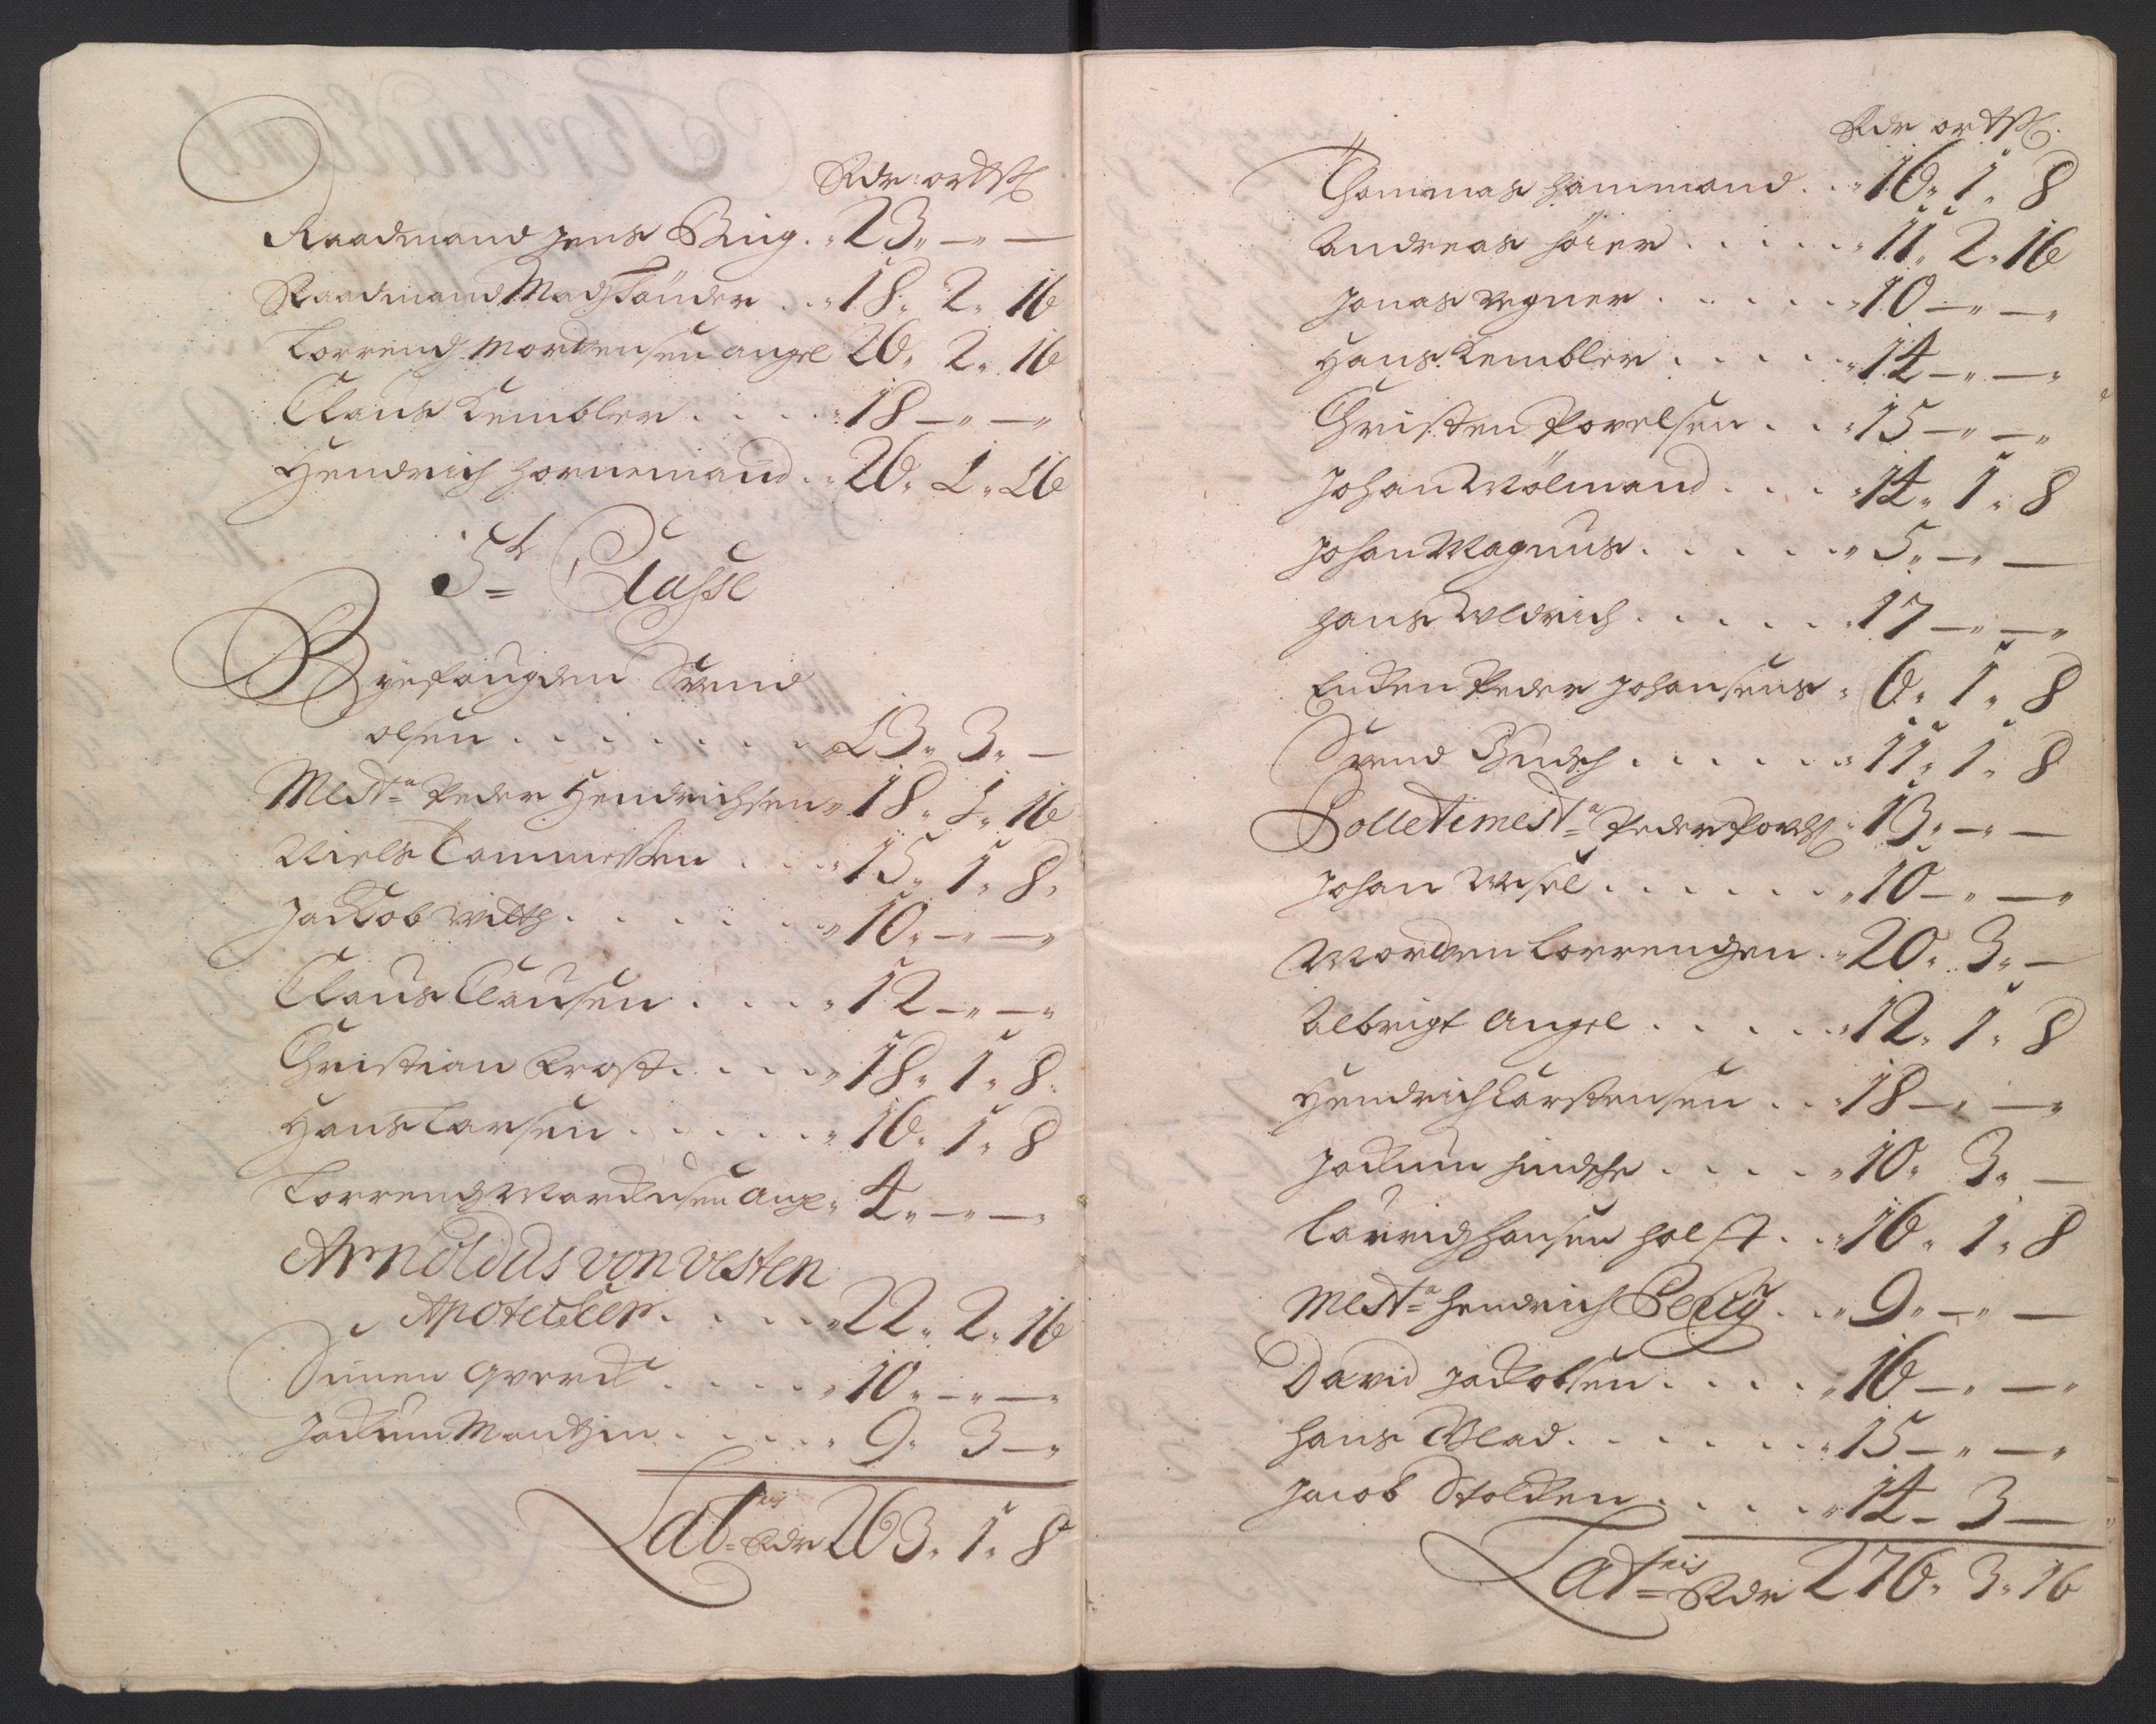 Rdr: ort ß
Raadmand Jens Bing . . 23„ —„ —
Raadmand Madz Tönder . . „18„ 2„ 16
Lorrendz Mortensen angel 26„ 2„ 16
Claus Kembler . . . . „18 —„ —„
Hendrich Hornemand . „26„ 1„ 16
5t Classe
Byefougden Svend
olsen . . . . . . . . „13„ 3„ —
Mestr Peder Hendrichsen „18„ 1„ 16
Niels Tommessen . . . „15„ 1„ 8„
Jackob Witth . . . . . . „10„ —„ —„
Claus Clausen . . . . „12 —„ —„
Christian Frost . . . . „18„ 1„ 8„
Hans Larsen . . . . . „16„ 1„ 8
Lorrendz Mortensen Angel „ 4„ —„ —„
Arnoldus von Westen
Apotecker . . . . . „22„ 2„ 16
Simen qverck . . . . . „10„ —„ —„
Jockum Mentzin . . . . . „ 9„ 3 —„
Lateris Rdr 263„ 1„ 8
Rdr ort ß
Thommas Hammond . . „16„ 1„ 8
Andreas Höier . . . . . „11„ 2„ 16
Jonas Wegner . . . . . „10 —„ —„
Hans Kembler . . . . . „14 —„ —„
Christen Povelsen . . „15 —„ —„
Johan Wölmand . . . „14„ 1„ 8
Johan Magnus . . . . . „ 5„ —„ —
Hans Uldrich . . . . . „17 —„ —„
Enken Peder Johansens „ 6„ 1„ 8
Svend . . . . . . „11„ 1„ 8
Tollerimestr Peder Povelß „13„ —„ —
Johan Wesel . . . . . . „10 —„ —„
Morten Lorrendzen . „20„ 3„ —
Albrigt Angel . . . . . „12„ 1„ 8
Hendrich Carstensen . . „18 —„ —„
Jockum . . . . „10„ 3„ —
Lauridz Hansen Holst . . „16„ 1„ 8
Mestr Hendrich . . „ 9„ —„ —
David Jackobsen . . . . „16 —„ —„
Hans Blad . . . . . . . „15 —„ —„
Jacob Stolken . . . . „14 — 3 —
Lateris Rdr 276„ 3„ 16